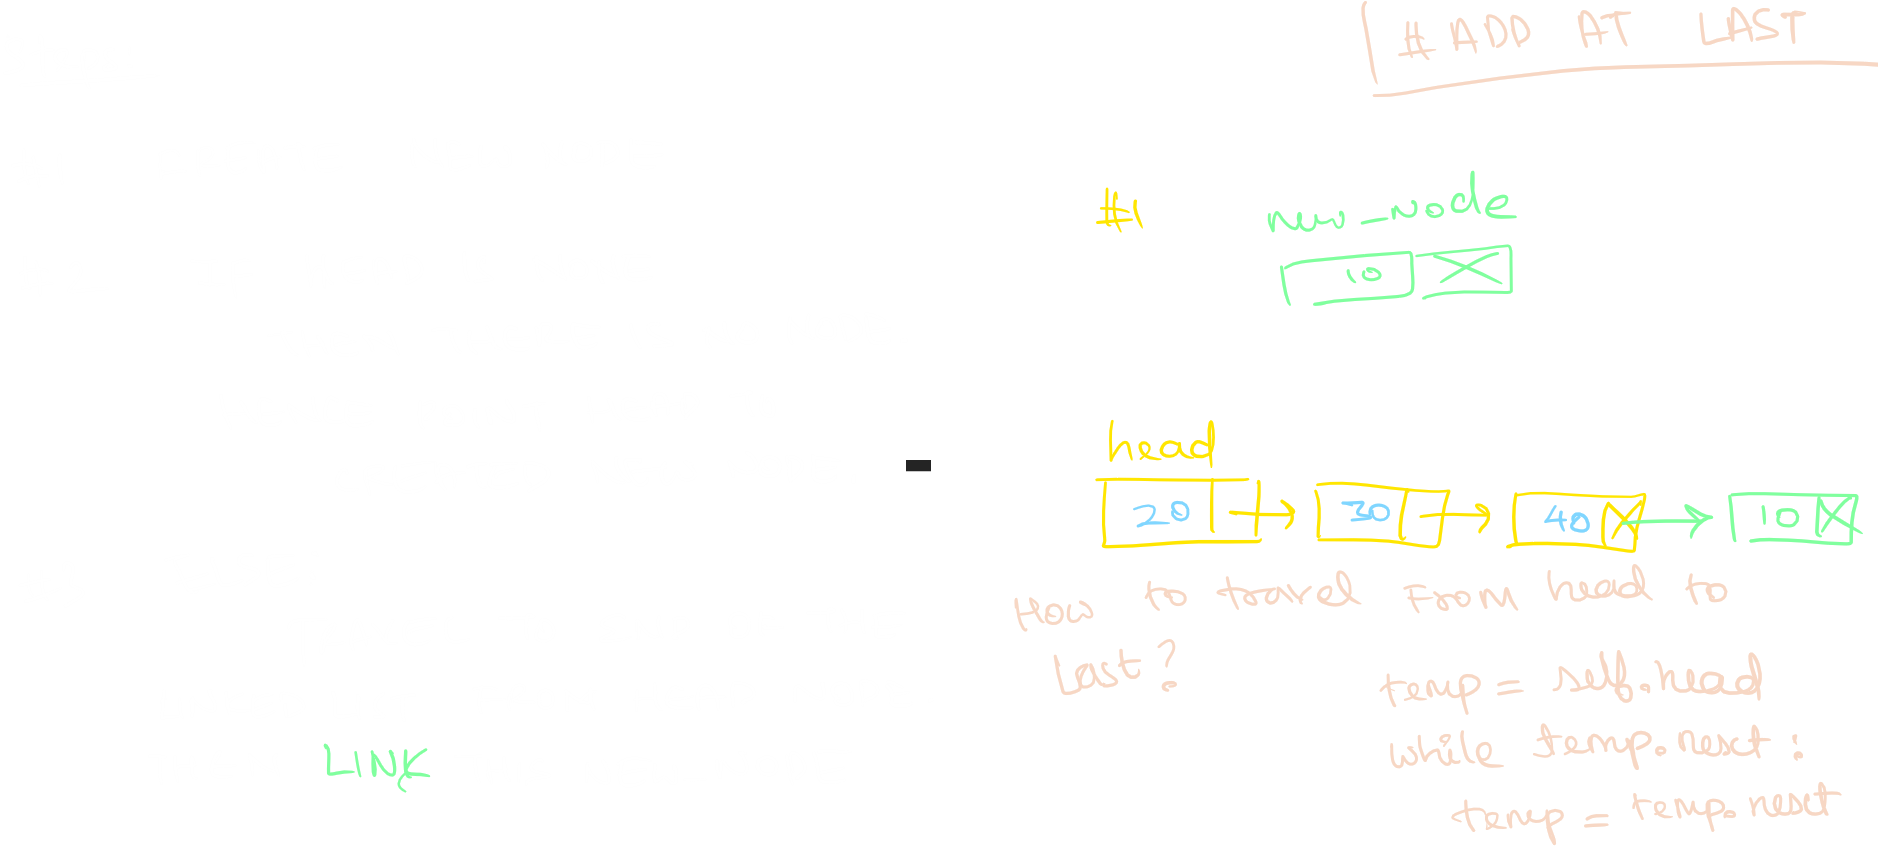 # ADD AT LAST
#1 new_node
10
head
20 30 40 10
How to travel From head to
Last?
temp = self.head
while temp.next:
temp = temp.next
LINK